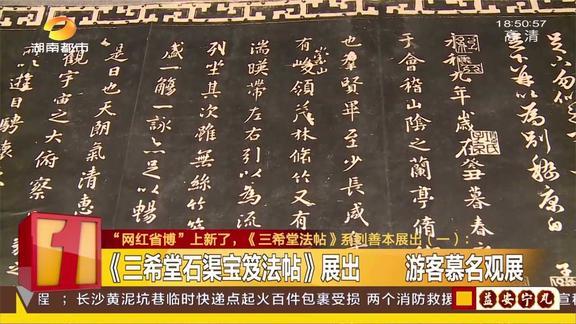 湖南都市
18:50:57
高清
永和九年歲在癸丑暮春
于會稽山陰之蘭亭脩
也羣賢畢至少長咸
崇山
有峻領茂林脩竹又有
湍暎帶左右引以為流
列坐其次雖無絲竹
盛一觴一詠亦足以暢
是日也天朗氣清惠
觀宇宙之大俯察
所以遊目騁懷
1
“网红省博”上新了，《三希堂法帖》系列善本展出（一）：
《三希堂石渠宝笈法帖》展出 游客慕名观展
程 ；长沙黄泥坑巷临时快递点起火百件包裹受损 两个消防救援
益安宁丸